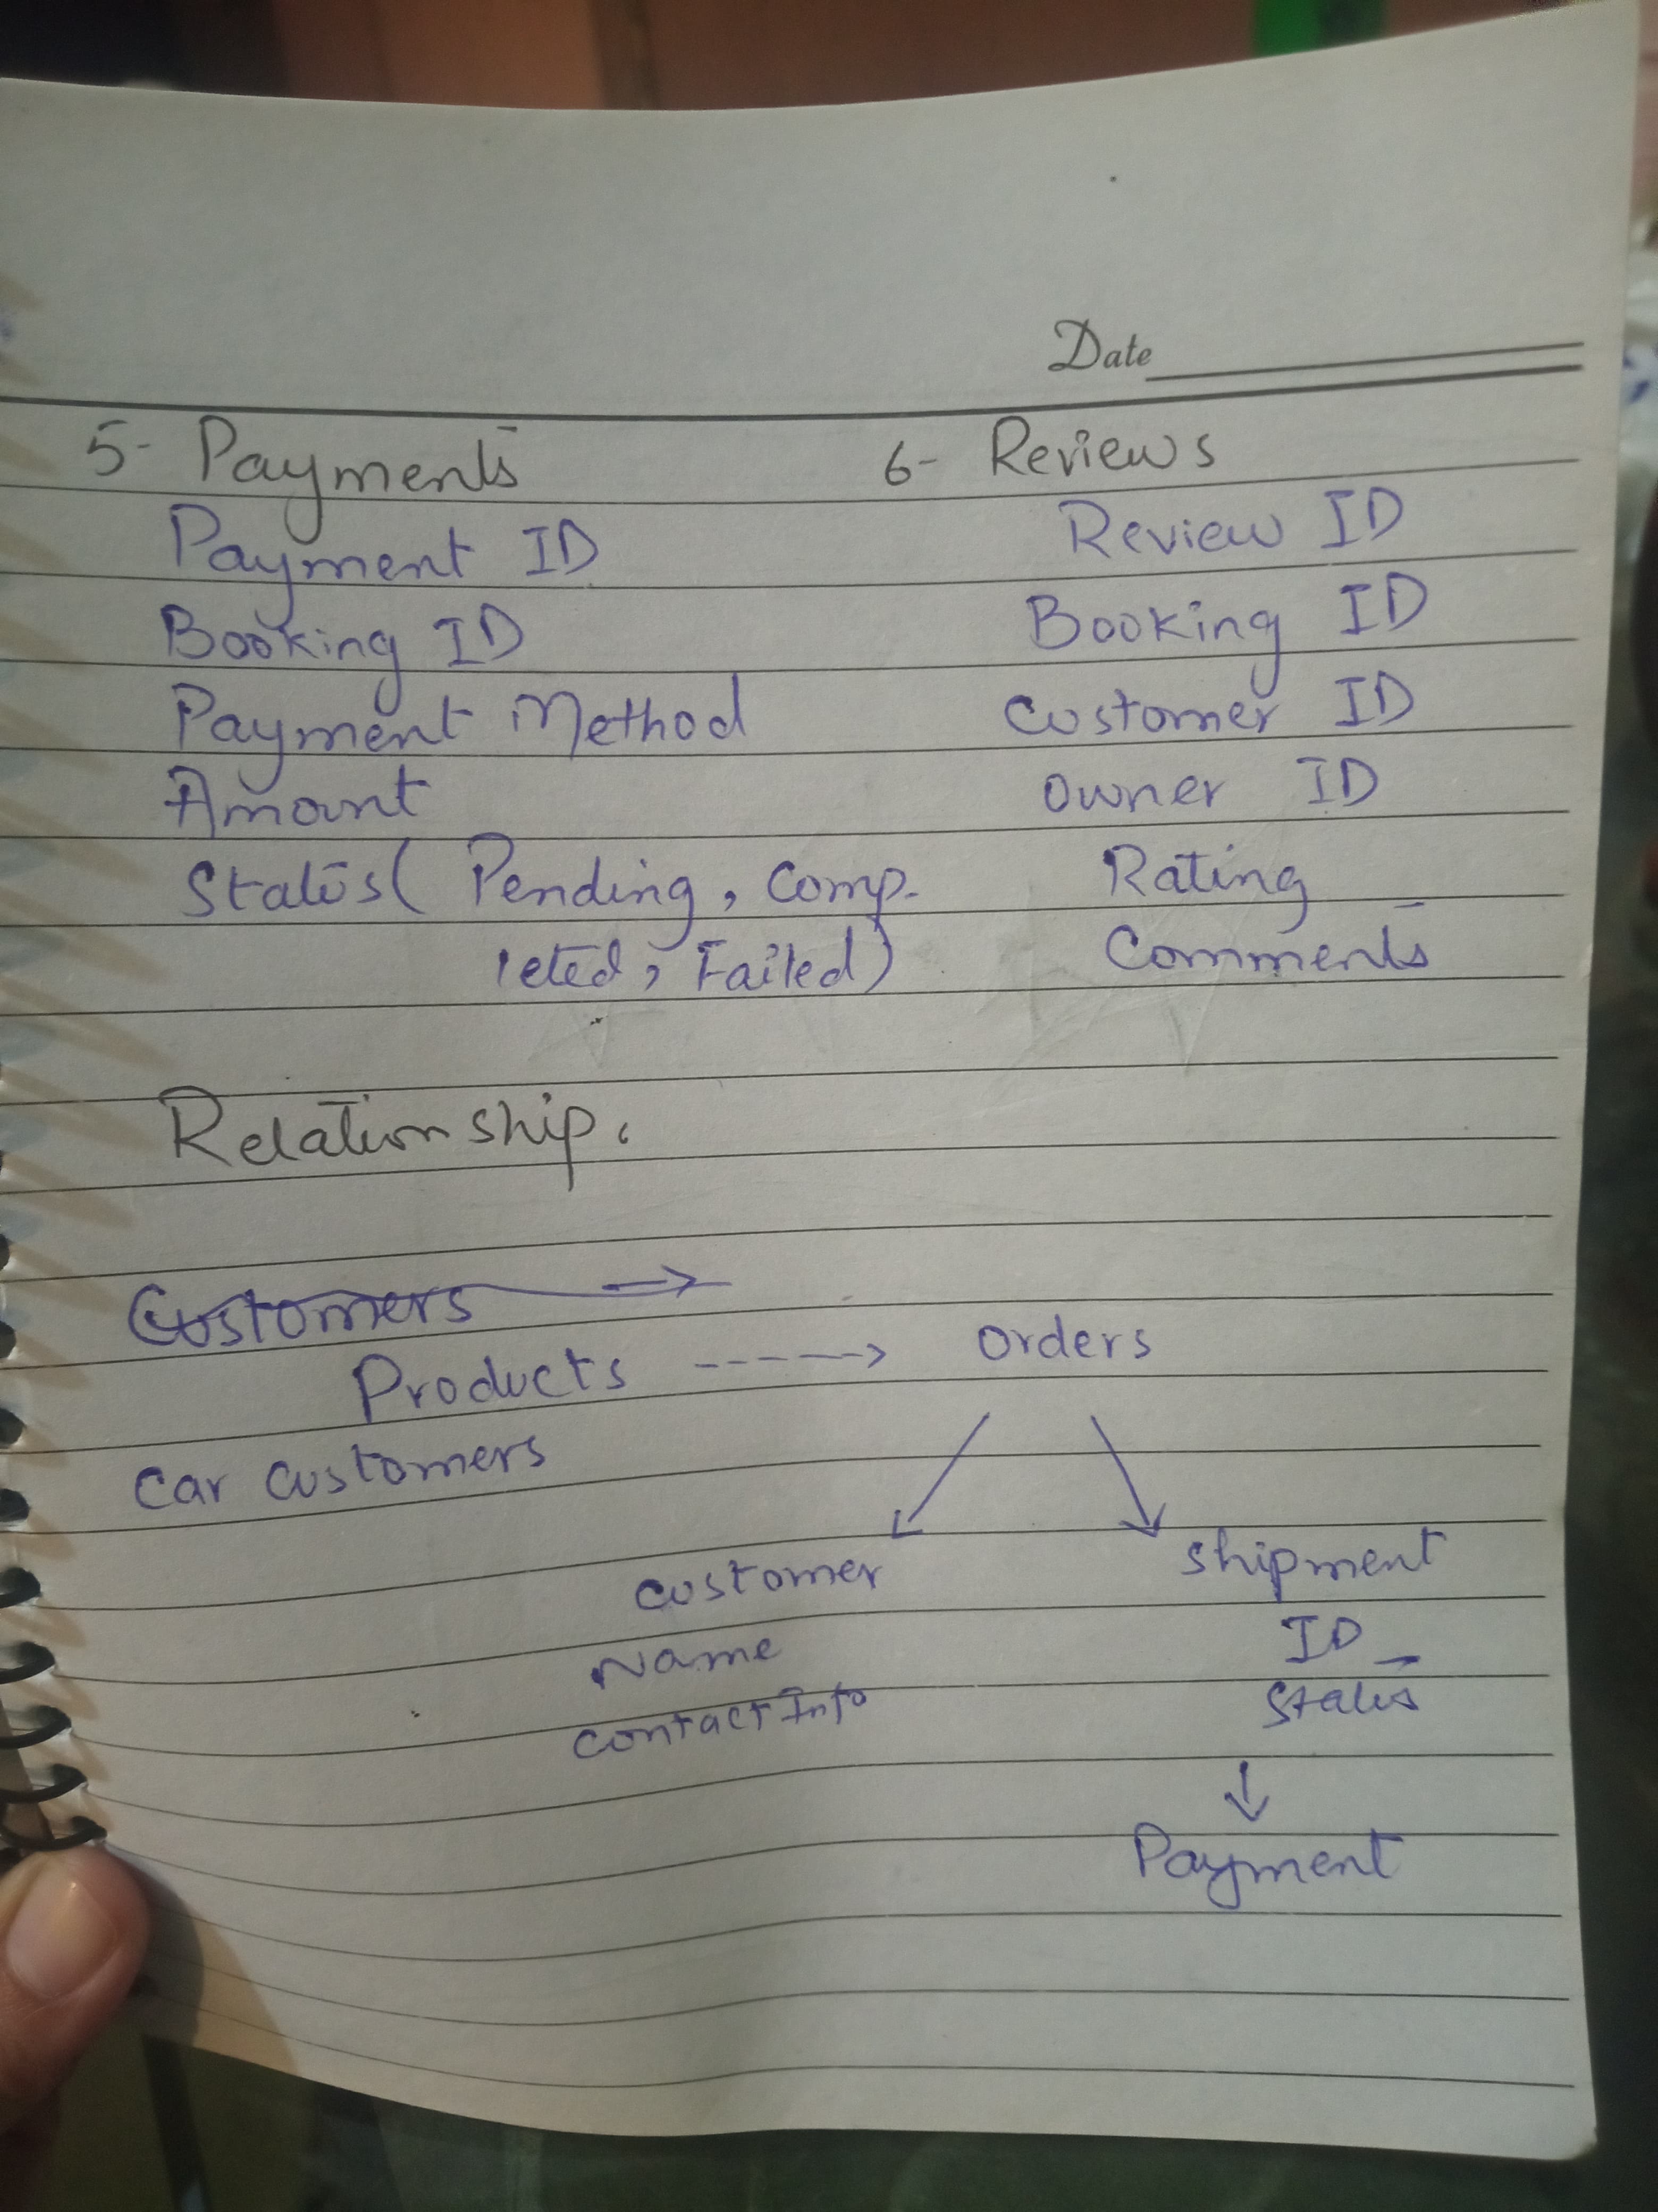 Date
5- Payments
Payment ID
Booking ID
Payment Method
Amount
Status( Pending, Comp-
leted, Failed)
6- Reviews
Review ID
Booking ID
Customer ID
Owner ID
Rating
Comments
Relationship.
Customers →
Products -----> Orders
Car Customers
Customer
Name
Contact Info
Shipment
ID
Status
↓
Payment